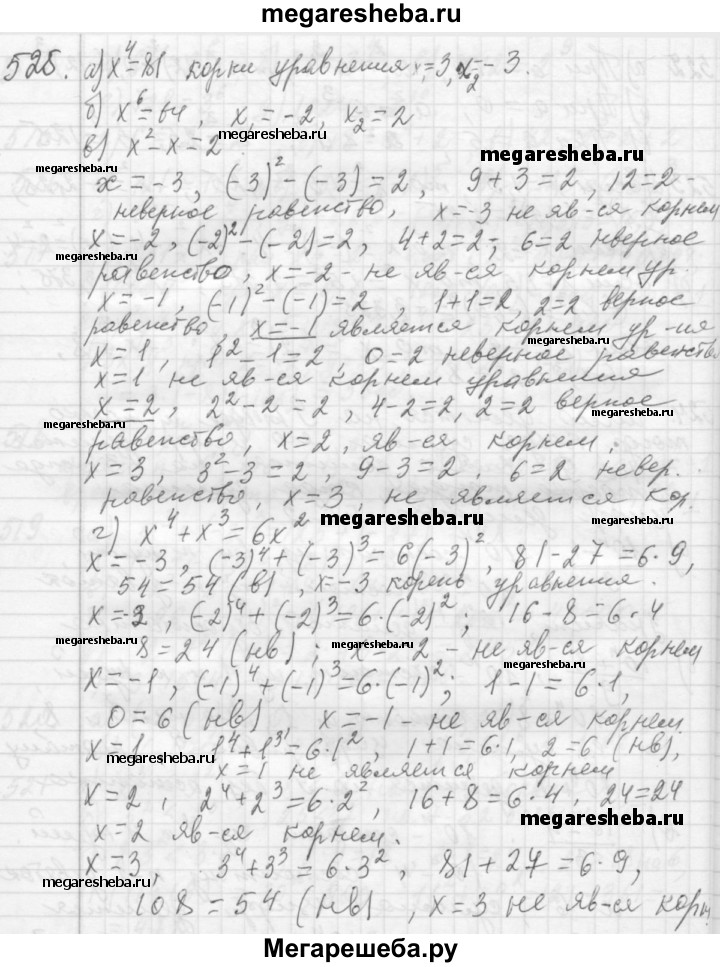 megaresheba.ru
525. а) x⁴=81 корни уравнения x₁=3, x₂=-3.
б) x⁶=64, x₁=-2, x₂=2
megaresheba.ru
в) x²-x=2
megaresheba.ru
megaresheba.ru
x=-3, (-3)²-(-3)=2, 9+3=2, 12=2 -
неверное равенство, x=-3 не яв-ся корнем
x=-2, (-2)²-(-2)=2, 4+2=2; 6=2 неверное
равенство, x=-2 - не яв-ся корнем ур.
x=-1, (-1)²-(-1)=2, 1+1=2 2=2 верное
равенство, x=-1 является корнем ур-ия
x=1, 1²-1=2, 0=2 неверное равенство
x=1 не яв-ся корнем уравнения
x=2, 2²-2=2, 4-2=2, 2=2 верное
megaresheba.ru
megaresheba.ru
равенство, x=2, яв-ся корнем,
x=3, 3²-3=2, 9-3=2, 6=2 невер.
равенство, x=3, не является кор.
г) x⁴+x³=6x²
megaresheba.ru
x=-3, (-3)⁴+(-3)³=6(-3)², 81-27=6·9,
54=54 (в), x=-3 корень уравнения.
x=2, (-2)⁴+(-2)³=6·(-2)²; 16-8=6·4
megaresheba.ru
megaresheba.ru
8=24 (нв); x=-2 - не яв-ся корнем
megaresheba.ru
x=-1, (-1)⁴+(-1)³=6·(-1)²; 1-1=6·1,
0=6 (нв) x=-1 - не яв-ся корнем.
x=1 1⁴+1³=6·1², 1+1=6·1, 2=6 (нв),
megaresheba.ru
x=1 не является корнем
x=2, 2⁴+2³=6·2², 16+8=6·4, 24=24
megaresheba.ru
x=2 яв-ся корнем.
x=3, 3⁴+3³=6·3², 81+27=6·9,
megaresheba.ru
megaresheba.ru
108=54 (нв), x=3 не яв-ся корн.
Мегарешеба.ру